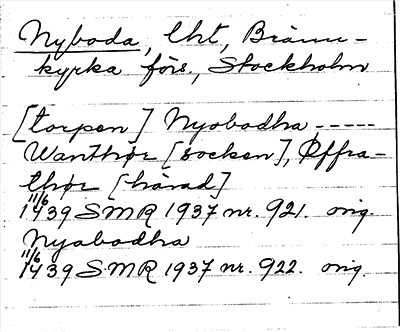 Nyboda, lht, Bränn-
kyrka förs., Stockholm
[torpen] Nyobodha -----
Wanthør [socken], Øffra-
thør [härad]
11/6 1439 SMR 1937 nr. 921. orig.
Nyabodha
11/6 1439 SMR 1937 nr. 922. orig.